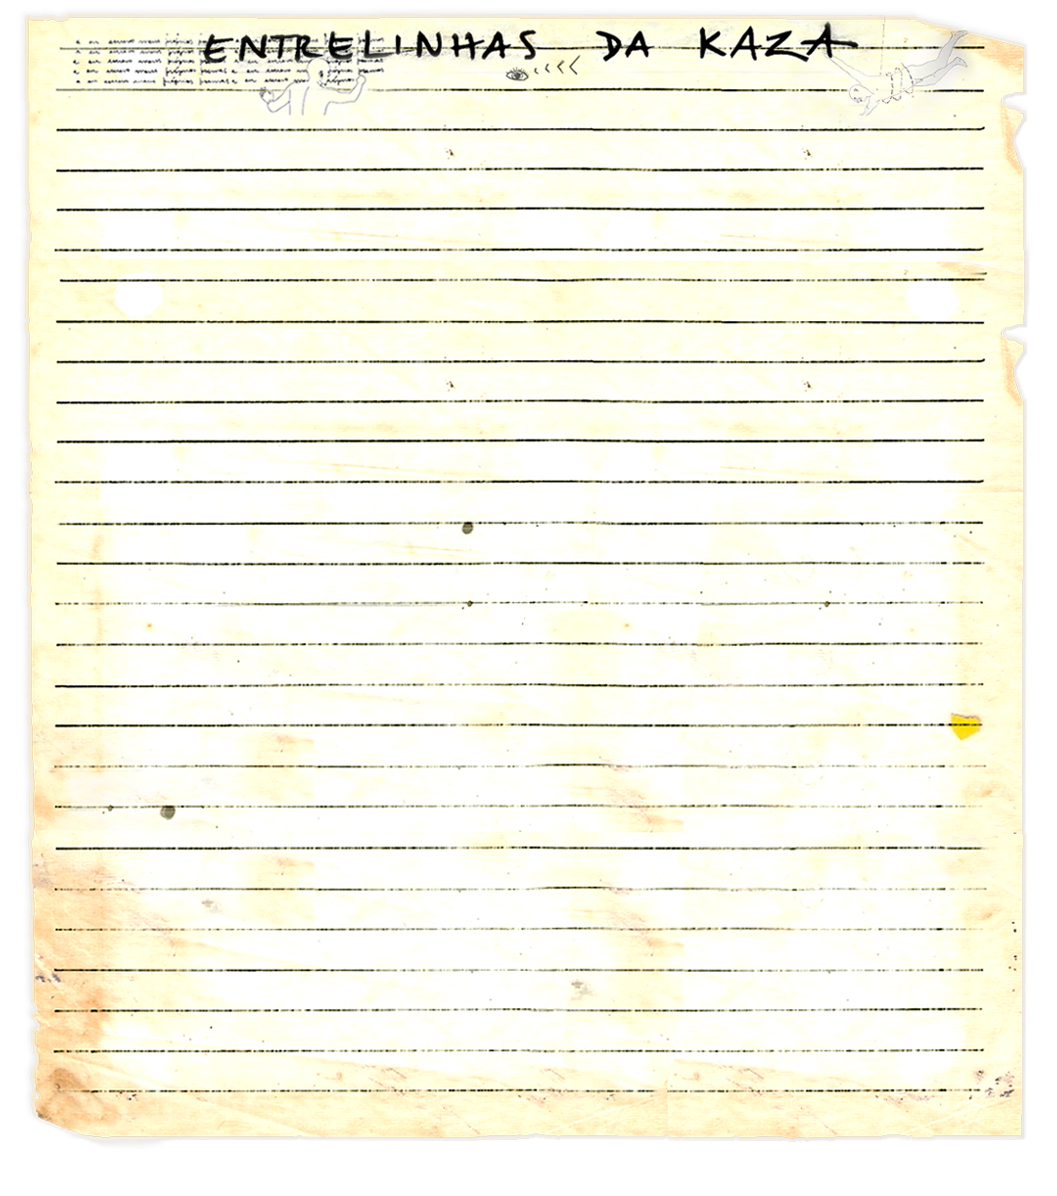 ENTRELINHAS DA KAZA